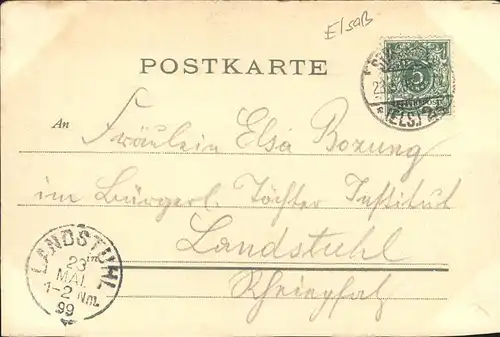 Elsaß
POSTKARTE
(ELS.)
An
Fräulein Elsa Bozung
im Bürgerl. Töchter Institut
in
Landstuhl
Rheinpfalz
LANDSTUHL
23
MAI.
1-2 Nm.
99